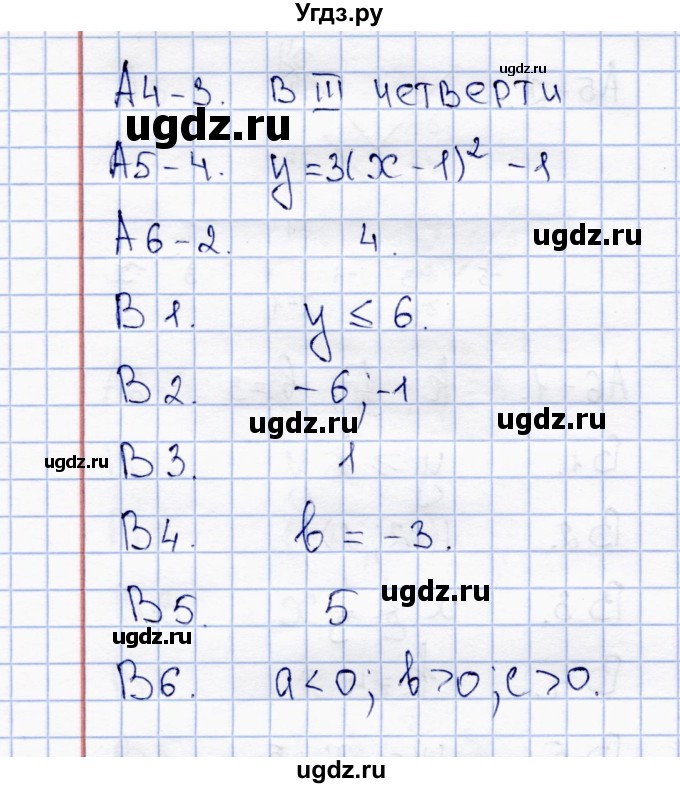 Угдз.ру
ugdz.ru
А4-3. В III четверти
ugdz.ru
А5-4. y=3(x-1)² -1
А6-2. 4.
ugdz.ru
В 1. y ≤ 6.
В 2. -6; -1
ugdz.ru
ugdz.ru
ugdz.ru
В 3. 1
В4. b = -3.
ugdz.ru
В 5. 5
ugdz.ru
В 6. a<0; b>0; c>0.
ugdz.ru
ugdz.ru